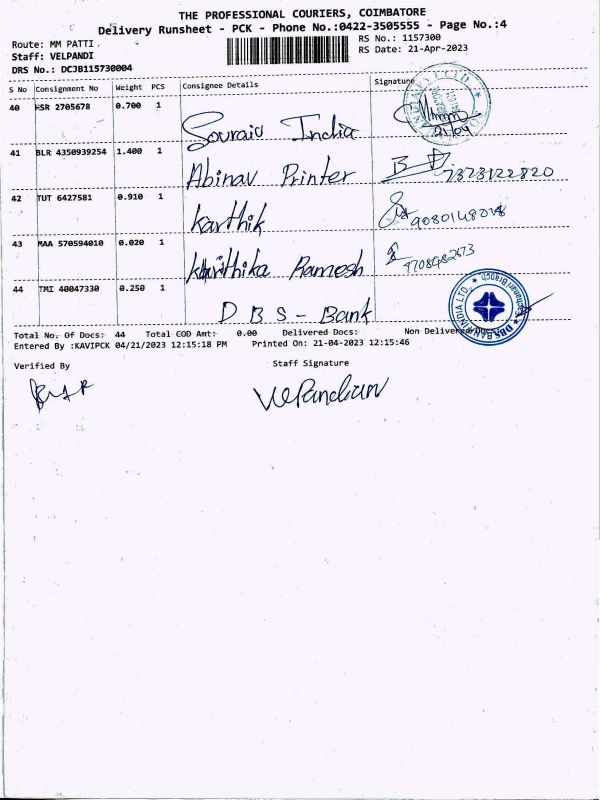 THE PROFESSIONAL COURIERS, COIMBATORE
Delivery Runsheet - PCK - Phone No.:0422-3505555 - Page No.:4
Route: MM PATTI . RS No.: 1157300
Staff: VELPANDI RS Date: 21-Apr-2023
DRS No.: DCJB115730004
S No Consignment No Weight PCS Consignee Details Signature
40 HSR 2705678 0.700 1
Souraiu India 21/04
41 BLR 4350939254 1.400 1
Abinav Printer 7373122820
42 TUT 6427581 0.910 1
Karthik 9080148078
43 MAA 570594010 0.020 1
Karithika Ramesh
44 TMI 40047330 0.250 1
DBS - Bank DBS BANK INDIA LTD.
Total No. Of Docs: 44 Total COD Amt: 0.00 Delivered Docs: Non Delivered Docs:
Entered By :KAVIPCK 04/21/2023 12:15:18 PM Printed On: 21-04-2023 12:15:46
Verified By Staff Signature
VelPandian